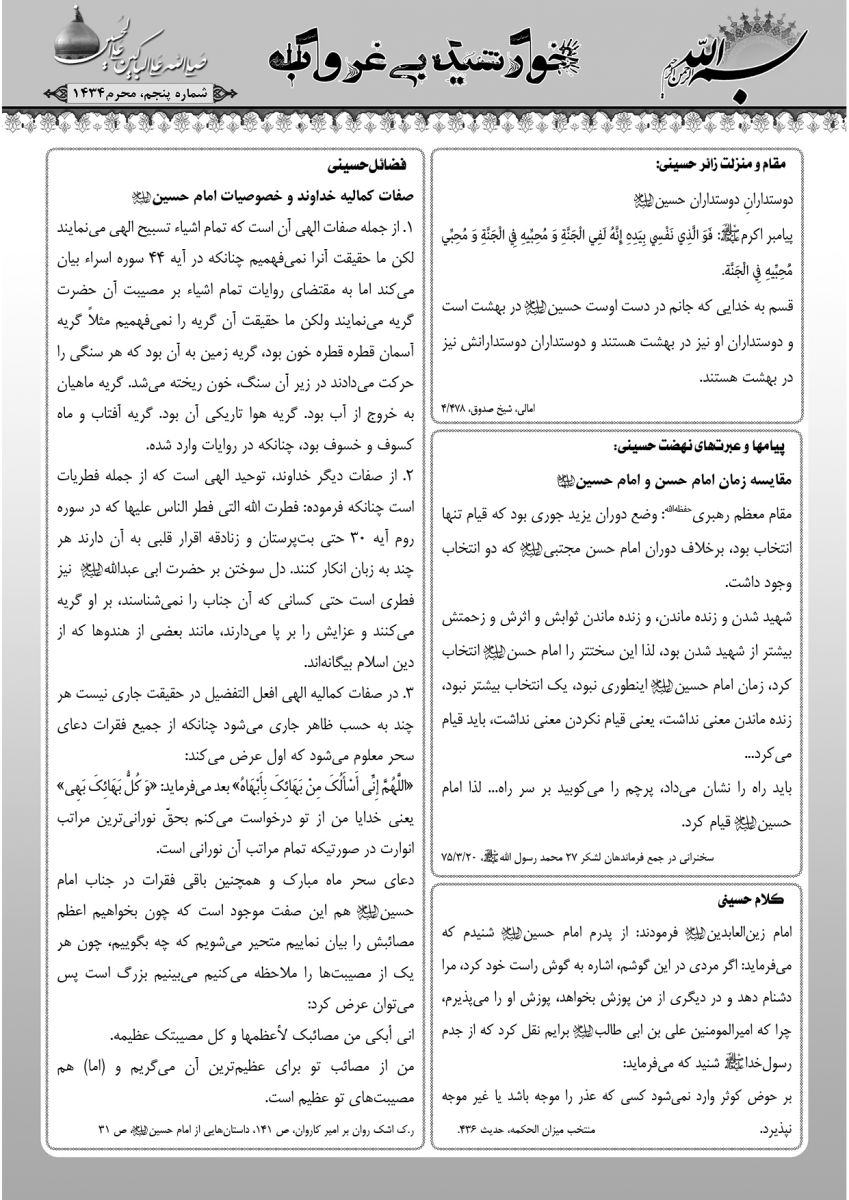 بسم الله الرحمن الرحیم
خورشید بی غروب
صلی الله علیک یا ابا عبدالله الحسین
شماره پنجم، محرم ۱۴۳۴
مقام و منزلت زائر حسینی:
دوستدارانِ دوستداران حسین علیه‌السلام
پیامبر اکرم ﷺ: فَوَ الَّذِي نَفْسِي بِيَدِهِ إِنَّهُ لَفِي الْجَنَّةِ وَ مُحِبِّيهِ فِي الْجَنَّةِ وَ مُحِبِّي
مُحِبِّيهِ فِي الْجَنَّة.
قسم به خدایی که جانم در دست اوست حسین علیه‌السلام در بهشت است
و دوستداران او نیز در بهشت هستند و دوستداران دوستدارانش نیز
در بهشت هستند.
امالی، شیخ صدوق، ۴/۴۷۸
پیامها و عبرت‌های نهضت حسینی:
مقایسه زمان امام حسن و امام حسین علیه‌السلام
مقام معظم رهبری حفظه‌الله: وضع دوران یزید جوری بود که قیام تنها
انتخاب بود، برخلاف دوران امام حسن مجتبی علیه‌السلام که دو انتخاب
وجود داشت.
شهید شدن و زنده ماندن، و زنده ماندن ثوابش و اثرش و زحمتش
بیشتر از شهید شدن بود، لذا این سختتر را امام حسن علیه‌السلام انتخاب
کرد، زمان امام حسین علیه‌السلام اینطوری نبود، یک انتخاب بیشتر نبود،
زنده ماندن معنی نداشت، یعنی قیام نکردن معنی نداشت، باید قیام
می‌کرد...
باید راه را نشان می‌داد، پرچم را می‌کوبید بر سر راه... لذا امام
حسین علیه‌السلام قیام کرد.
سخنرانی در جمع فرماندهان لشکر ۲۷ محمد رسول الله ﷺ، ۷۵/۳/۲۰
کلام حسینی
امام زین‌العابدین علیه‌السلام فرمودند: از پدرم امام حسین علیه‌السلام شنیدم که
می‌فرماید: اگر مردی در این گوشم، اشاره به گوش راست خود کرد، مرا
دشنام دهد و در دیگری از من پوزش بخواهد، پوزش او را می‌پذیرم،
چرا که امیرالمومنین علی بن ابی طالب علیه‌السلام برایم نقل کرد که از جدم
رسول‌خدا ﷺ شنید که می‌فرماید:
بر حوض کوثر وارد نمی‌شود کسی که عذر را موجه باشد یا غیر موجه
نپذیرد.
منتخب میزان الحکمه، حدیث ۴۳۶.
فضائل حسینی
صفات کمالیه خداوند و خصوصیات امام حسین علیه‌السلام
۱. از جمله صفات الهی آن است که تمام اشیاء تسبیح الهی می‌نمایند
لکن ما حقیقت آنرا نمی‌فهمیم چنانکه در آیه ۴۴ سوره اسراء بیان
می‌کند اما به مقتضای روایات تمام اشیاء بر مصیبت آن حضرت
گریه می‌نمایند ولکن ما حقیقت آن گریه را نمی‌فهمیم مثلاً گریه
آسمان قطره قطره خون بود، گریه زمین به آن بود که هر سنگی را
حرکت می‌دادند در زیر آن سنگ، خون ریخته می‌شد. گریه ماهیان
به خروج از آب بود. گریه هوا تاریکی آن بود. گریه آفتاب و ماه
کسوف و خسوف بود، چنانکه در روایات وارد شده.
۲. از صفات دیگر خداوند، توحید الهی است که از جمله فطریات
است چنانکه فرموده: فطرت الله التی فطر الناس علیها که در سوره
روم آیه ۳۰ حتی بت‌پرستان و زنادقه اقرار قلبی به آن دارند هر
چند به زبان انکار کنند. دل سوختن بر حضرت ابی عبدالله علیه‌السلام نیز
فطری است حتی کسانی که آن جناب را نمی‌شناسند، بر او گریه
می‌کنند و عزایش را بر پا می‌دارند، مانند بعضی از هندوها که از
دین اسلام بیگانه‌اند.
۳. در صفات کمالیه الهی افعل التفضیل در حقیقت جاری نیست هر
چند به حسب ظاهر جاری می‌شود چنانکه از جمیع فقرات دعای
سحر معلوم می‌شود که اول عرض می‌کند:
«اللَّهُمَّ إِنِّي أَسْأَلُکَ مِنْ بَهَائِکَ بِأَبْهَاهُ» بعد می‌فرماید: «وَ کُلُّ بَهَائِکَ بَهِی»
یعنی خدایا من از تو درخواست می‌کنم بحقّ نورانی‌ترین مراتب
انوارت در صورتیکه تمام مراتب آن نورانی است.
دعای سحر ماه مبارک و همچنین باقی فقرات در جناب امام
حسین علیه‌السلام هم این صفت موجود است که چون بخواهیم اعظم
مصائبش را بیان نماییم متحیر می‌شویم که چه بگوییم، چون هر
یک از مصیبت‌ها را ملاحظه می‌کنیم می‌بینیم بزرگ است پس
می‌توان عرض کرد:
انی أبکی من مصائبک لأعظمها و کل مصیبتک عظیمه.
من از مصائب تو برای عظیم‌ترین آن می‌گریم و (اما) هم
مصیبت‌های تو عظیم است.
ر.ک اشک روان بر امیر کاروان، ص ۱۴۱، داستان‌هایی از امام حسین علیه‌السلام ص ۳۱